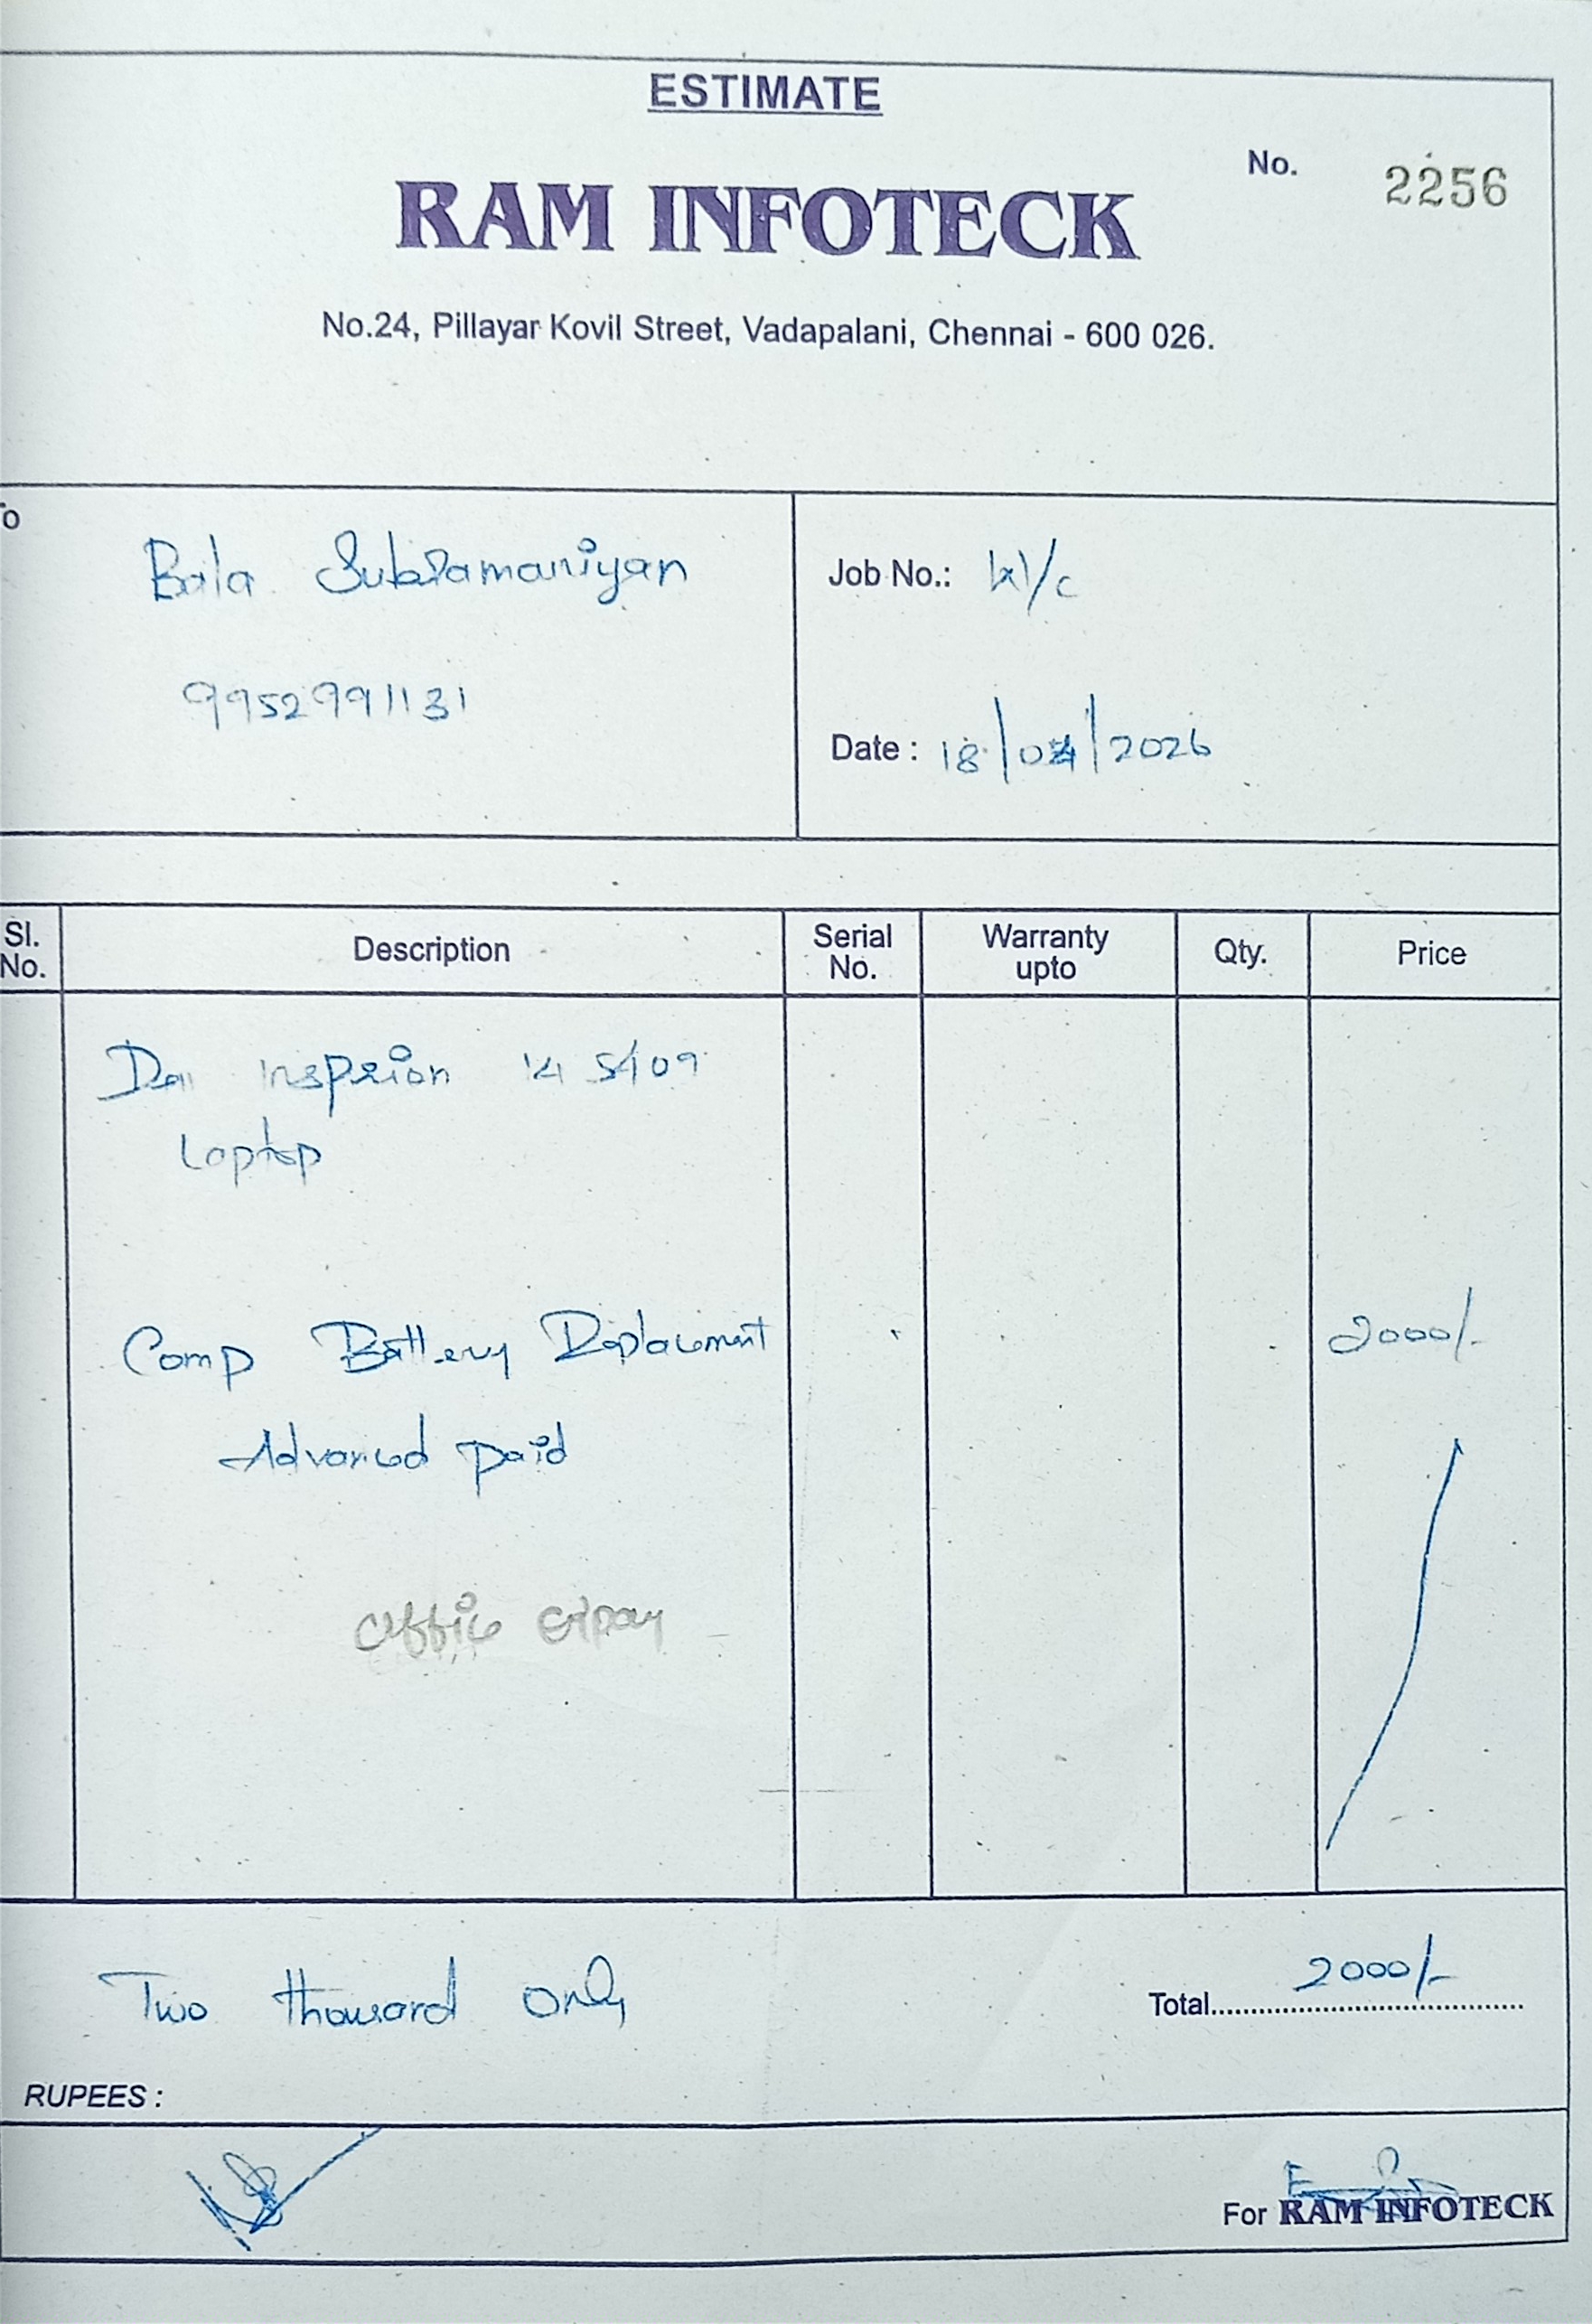 ESTIMATE
No. 2256
RAM INFOTECK
No.24, Pillayar Kovil Street, Vadapalani, Chennai - 600 026.
To
Bala Subramaniyan
9952991131
Job No.: W/c
Date : 18/04/2026
Sl. No. Description Serial No. Warranty upto Qty. Price
Dell Inspirion 14 5409
Laptop
Comp Battery Replacement 2000/-
Advanced paid
Office Gpay
Two thousand only
Total 2000/-
RUPEES :
For RAM INFOTECK